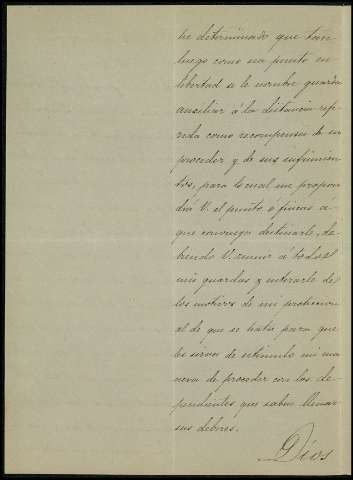 he determinado que tan
luego como sea puesto en
libertad se le nombre guarda
auxiliar á la distancia refe-
rida como recompensa de su
proceder y de sus sufrimien-
tos, para lo cual me propon-
drá V. el punto ó fincas á
que convenga destinarle, de-
biendo V. reunir á todos
mis guardas y enterarle de
los motivos de mi proteccion
al de que se trata para que
les sirva de estimulo mi ma-
nera de proceder con los de-
pendientes que saben llenar
sus deberes.
Dios